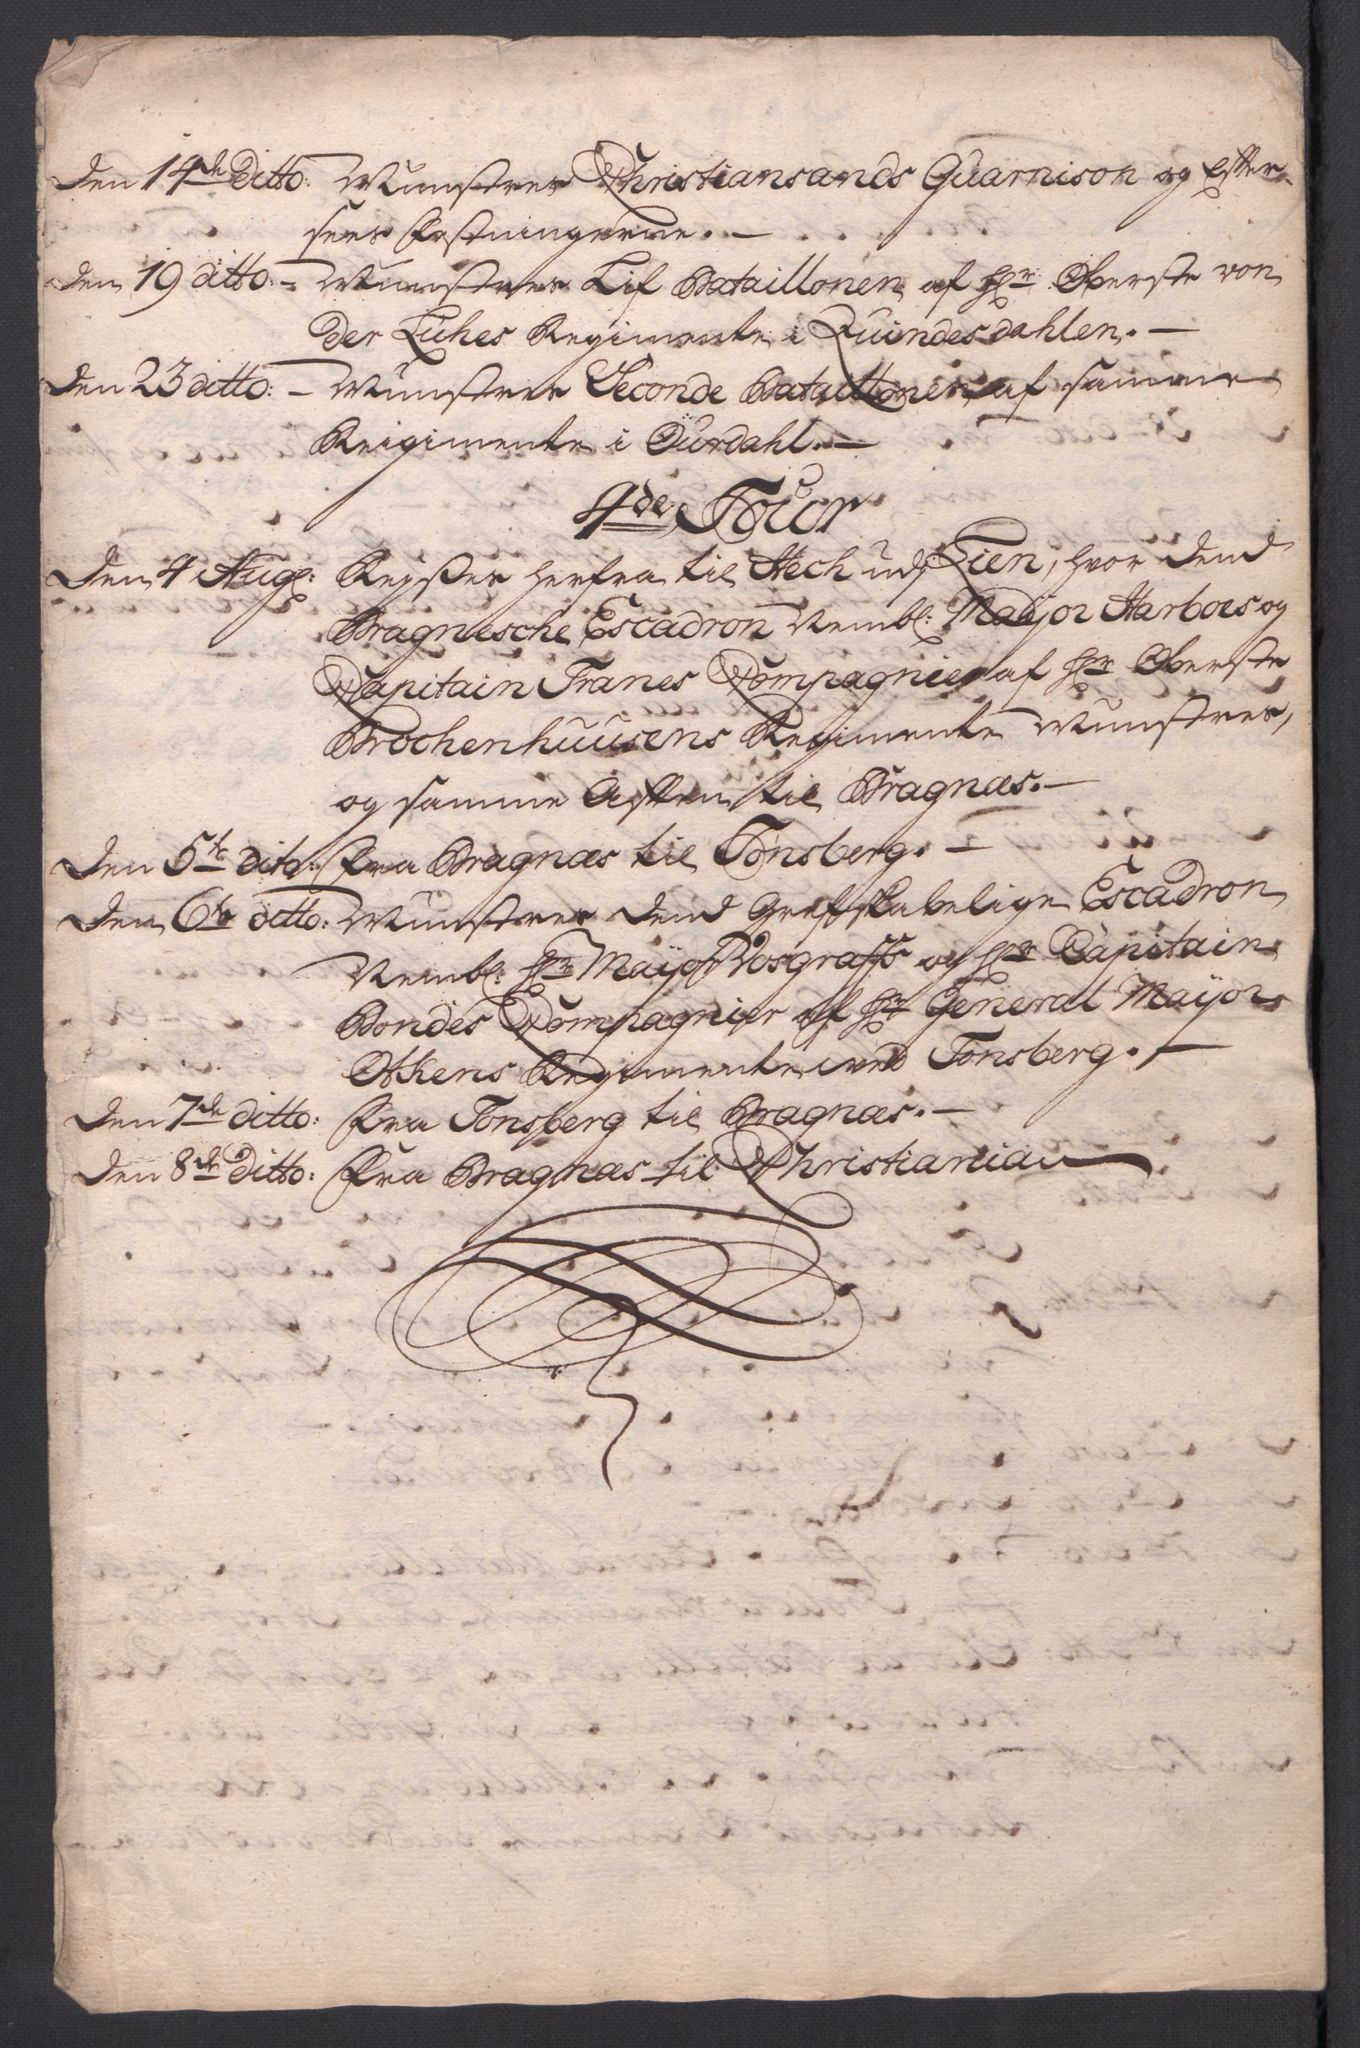 Den 14de Ditto: Munstres Christiansands Guarnison og Efter-
sees Fæstningerne. —
Den 19 ditto: – Munstres Lif Bataillonen af Hr: Oberste von
Der Lühes Regimente i Quindesdahlen. —
Den 23 ditto: – Munstres Seconde Bataillonen af samme
Reigimente i Ourdahl. —
4de Tour
Den 4 Aug: Rejstes herfra til Hech udj Lien, hvor dend
Bragnesche Escadron Nembl: Mayor Harboes og
Capitain Tranes Compagnier af Hr Oberste
Brochenhuusens Regimente Munstres,
og samme Aften til Bragnæs. —
Den 5te dito: fra Bragnæs til Tønsberg. —
Den 6te ditto: Munstres dend Grefskabelige Escadron
Nembl: Hr Mayor Vosgraffs og Hr Capitain
Bondes Compagnier af Hr General Mayor
Otkens Regimente ved Tonsberg. —
Den 7de ditto: fra Tonsberg til Bragnæs. —
Den 8de Ditto: fra Bragnæs til Christiania